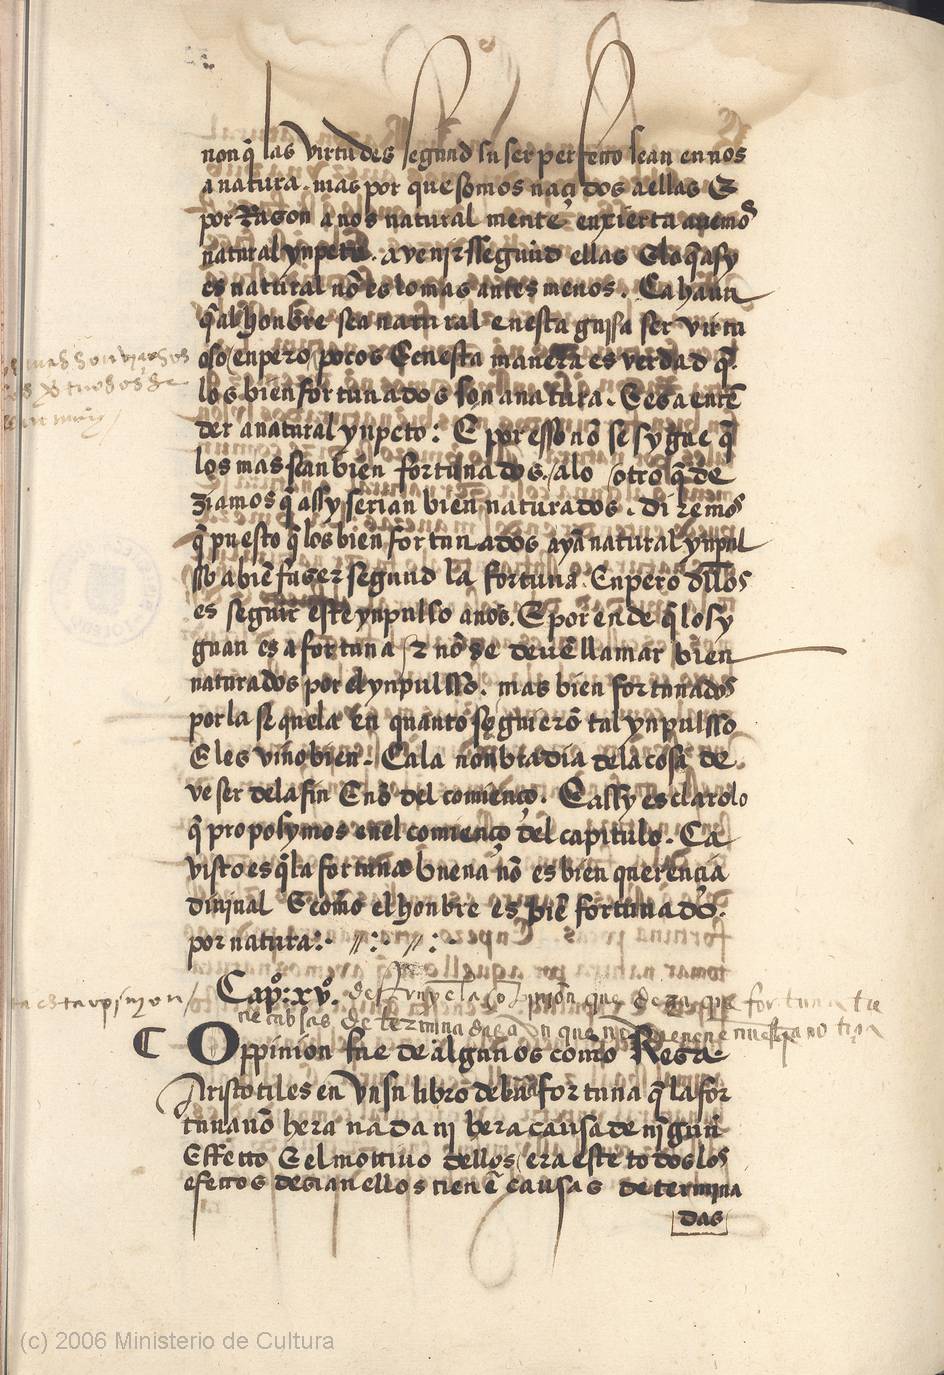 nonq̃ las virtudes segund su ser perfetto sean en nos
a natura . mas por que somos naçidos a ellas E
por Razon a nos natural mente enxierta auemos
natural ynpetu . a venir segund ellas E lo q̃ asy
es natural nõ es lo mas antes menos . Ca haun
q̃ al honbre sea natural en esta guisa ser virtu
oso enpero pocos E en esta manera es verdad q̃
los bien fortunados son a natura . E es a entẽ
der a natural ynpeto : E por esso nõ se sygue q̃
los mas sean bien fortunados . a lo otro q̃ de
ziamos q̃ assy serian bien naturados . diremos
q̃ puesto q̃ los bien fortunados ayã natural ynpul
sso a biẽ faser segund la fortuna . Enpero dellos
es seguir este ynpulso a nos . E por ende q̃ lo sy
guan es a fortuna E nõ se deuẽ llamar bien
naturados por el ynpulsso . mas bien fortunados
por la sequela en quanto seguierõ tal ynpulsso
E les vino bien . Ca la nonbradia de la cosa de
ve ser de la fin E nõ del comienço . E assy es claro lo
q̃ proposymos en el comienço del capitulo . Ca
visto es q̃ la fortuna buena nõ es bien querençia
diuinal E como el honbre es biẽ fortunado
por natura :
Capº : xvº .
Oppinion fue de algunos como Reza
Aristotiles en vn su libro de bna fortuna q̃ la for
tuna nõ hera nada ni hera causa de nĩgun
Effetto E el mottiuo dellos era este todos los
efettos desian ellos tienẽ causas determina
das
(c) 2006 Ministerio de Cultura